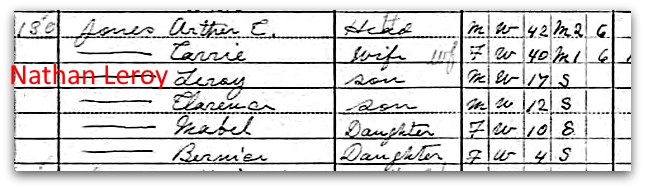 130 Jones Arther C. Head M W 42 M2 6
Carrie Wife F W 40 M1 6
Nathan Leroy Leroy son M W 17 S
Clarence son M W 12 S
Mabel Daughter F W 10 S
Bernice Daughter F W 4 S